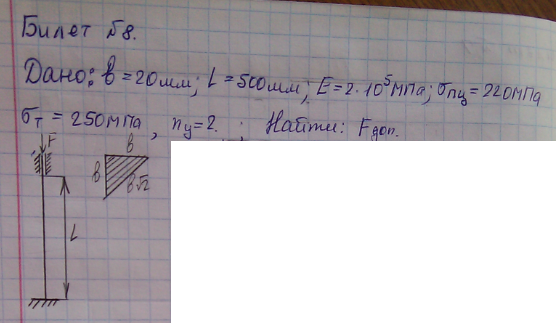 Билет №8.
Дано: b=20мм; L=500мм; E=2·10⁵МПа; σпц=220МПа
σт=250МПа, nу=2. ; Найти: Fдоп.
F
b
b
b√2
L